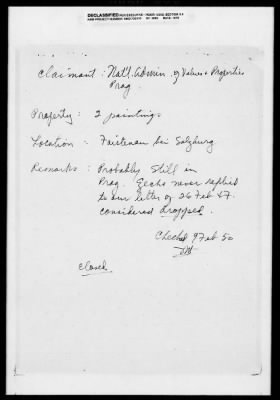 DECLASSIFIED
Claimant : Nat'l. Admin. of Values & Properties
Prag
Property : 2 paintings
Location : Fürstenau bei Salzburg
Remarks : Probably still in
Prag. Czechs never replied
to our letter of 26 Feb 47.
considered dropped.
Checked 9 Feb 50
closed